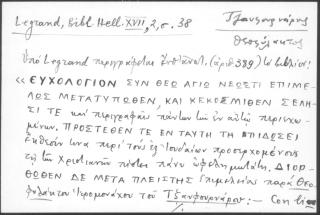 Legrand, Bibl. Hell. XVII, 2, σ. 38
Τζανφουρνάρος
Θεοφύλακτος
Ὑπὸ Legrand περιγράφεται (ἀριθ 389) τὸ βιβλίον:
« ΕΥΧΟΛΟΓΙΟΝ ΣΥΝ ΘΕΩ ΑΓΙΩ ΝΕΩΣΤΙ ΕΠΙΜΕ-
ΛΩΣ ΜΕΤΑΤΥΠΩΘΕΝ, ΚΑΙ ΚΕΚΟΣΜΙΘΕΝ
ΤΕ καὶ περιγραφαῖς πάντων τῶν ἐν αὐτῷ περιεχο-
μένων. ΠΡΟΣΤΕΘΕΝ ΤΕ ΕΝ ΤΑΥΤΗ ΤΗ ΕΠΙΔΩΣΕΙ
περὶ τοὺς ἐξ Ἰουδαίων προσερχομένους
τῇ τῶν Χριστιανῶν πίστει πάνυ ὠφέλημον, ΔΙΟΡ-
ΘΩΘΕΝ ΔΕ ΜΕΤΑ ΠΛΕΙΣΤΗΣ ἐπιμελείας παρὰ Θεο-
φυλάκτου Ἱερομονάχου τοῦ Τζανφουρνάρου: — Con